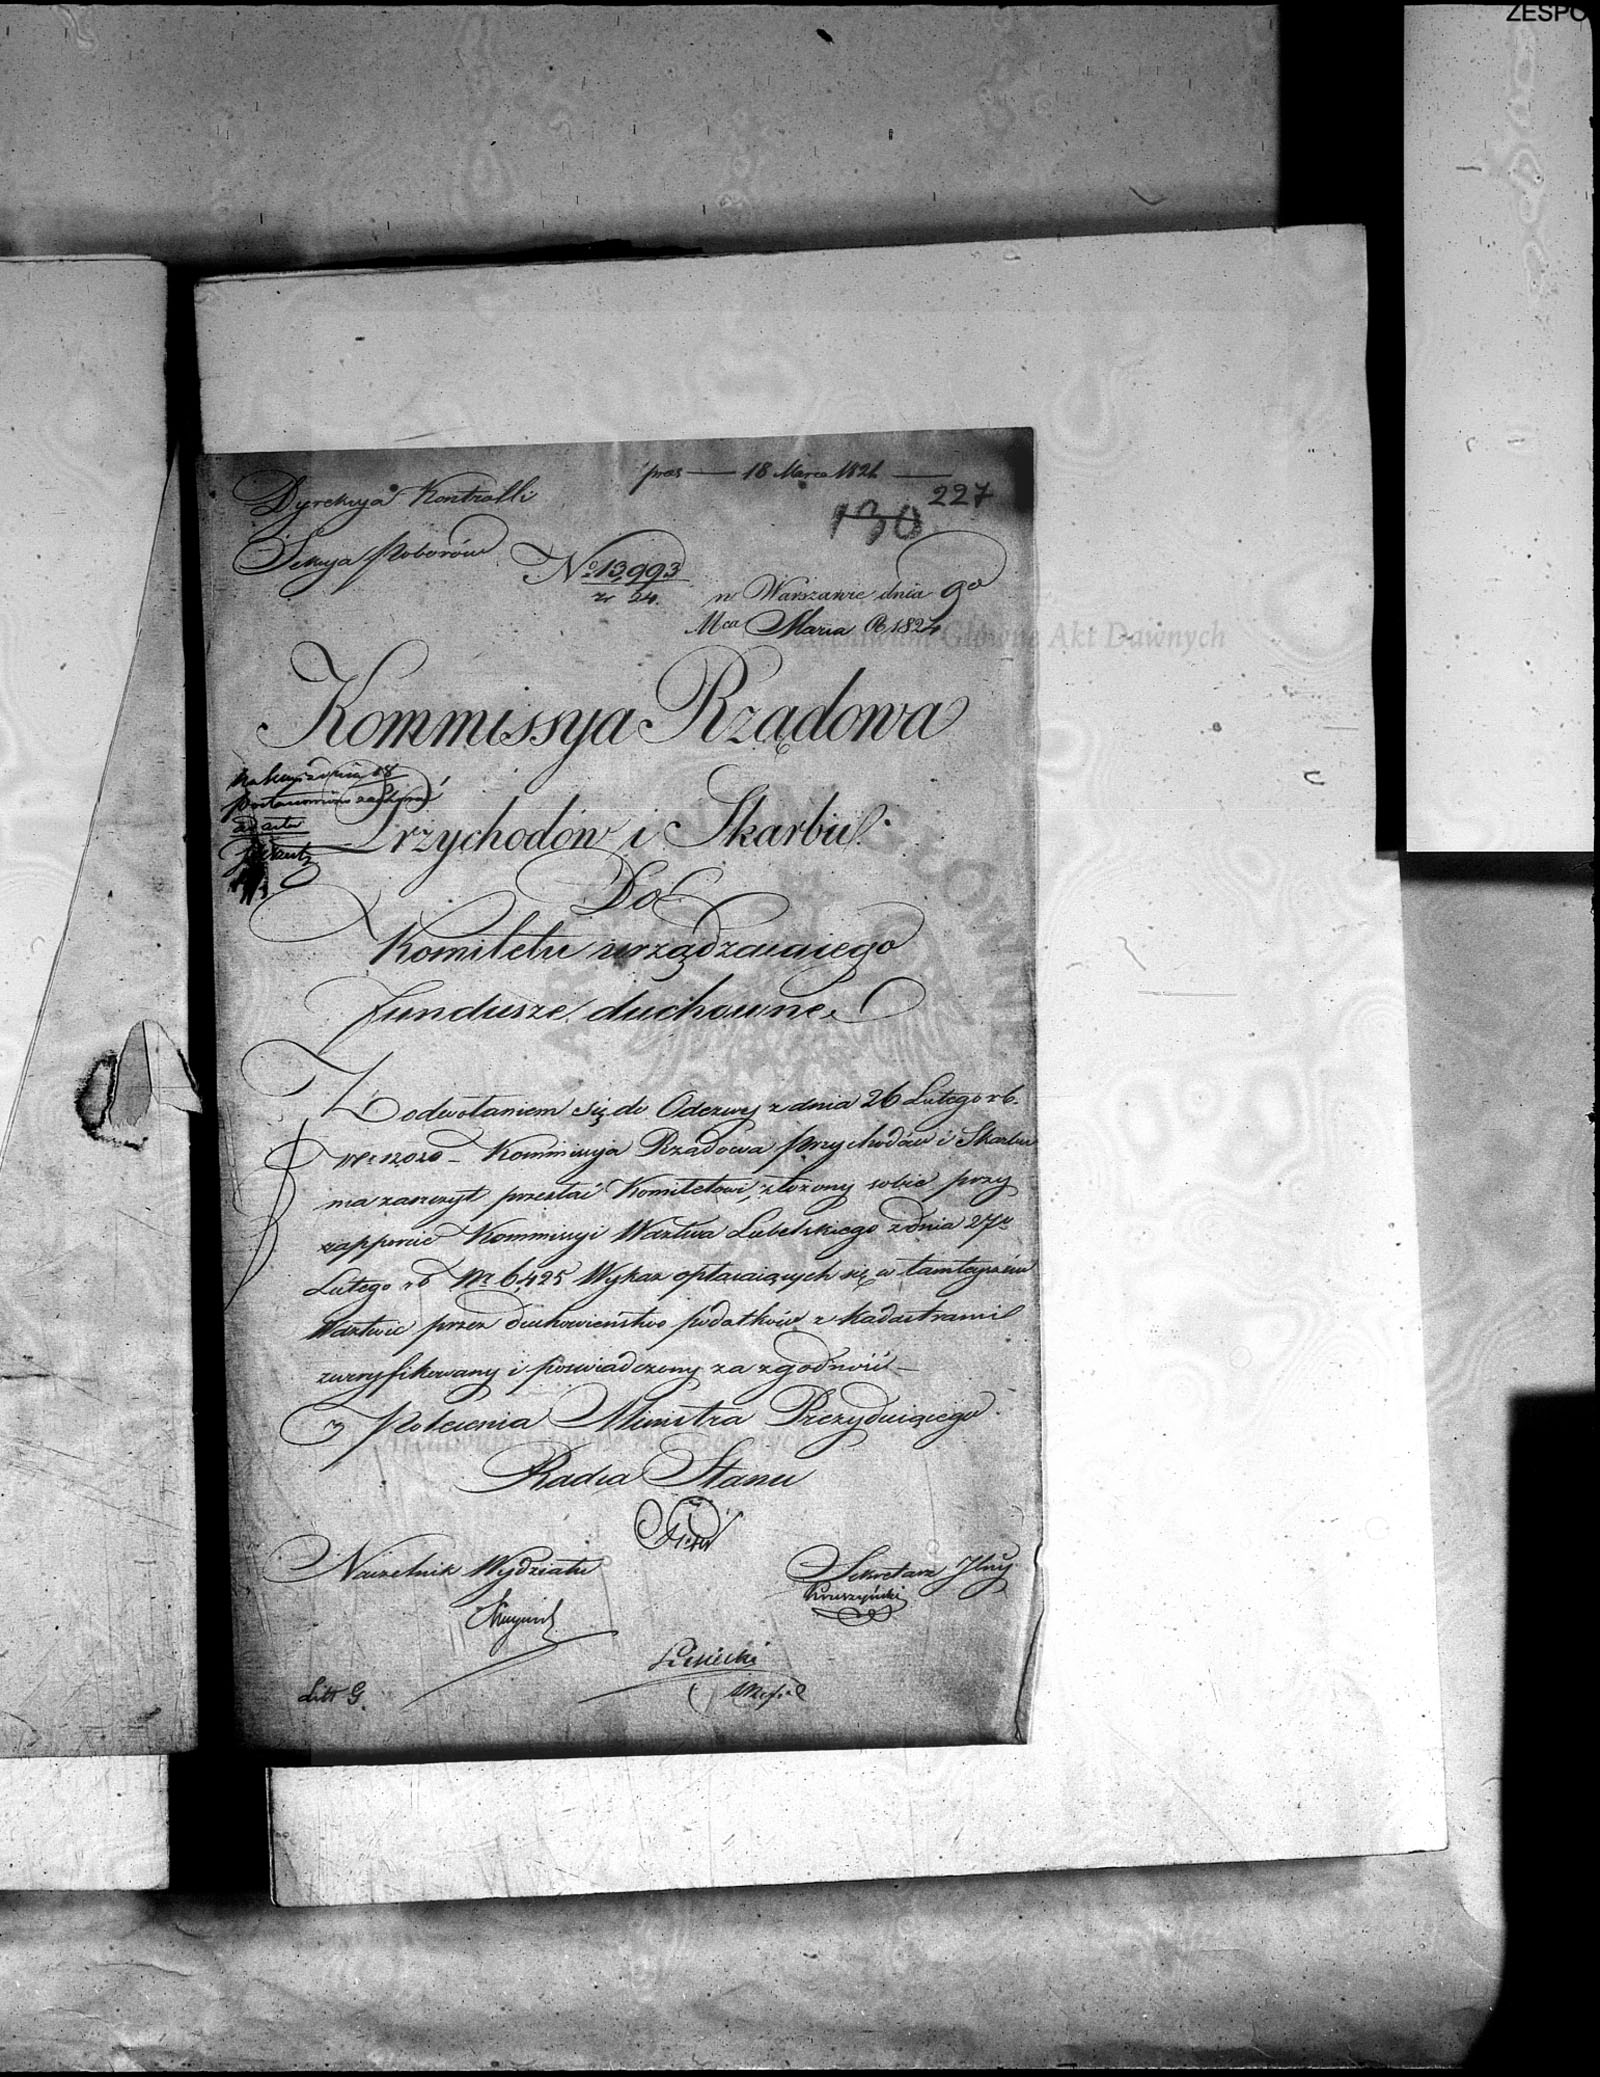 ZESPO
pras — 18 Marca 1824 —
Dyrekcya Kontrolli
227
130
Sekcya Poborów
No 13,993
z 24.
w Warszawie dnia 9o
Mca Marca R 1824
Kommissya Rządowa
Przychodów i Skarbu.
ad acta
Do
Komitetu urządzaiącego
Fundusze duchowne.
Z odwołaniem się do Odezwy z dnia 26 Lutego rb.
Nr 12020 – Kommissya Rządowa przychodów i Skarbu
ma zaszczyt przesłać Komitetowi, złożony sobie przy
rapporcie Kommissyi Wdztwa Lubelskiego z dnia 27o
Lutego rb Nr 6,425 Wykaz opłacaiących się w tamtejszém
Wdztwie przez duchowieństwo podatków z Kadastrami
zweryfikowany i poświadczony za zgodność –
z Polecenia Ministra Prezyduiącego.
Radca Stanu
Naczelnik Wydziału
Sekretarz Jlny
Kruszyński
Litt G.
Archiwum Główne Akt Dawnych